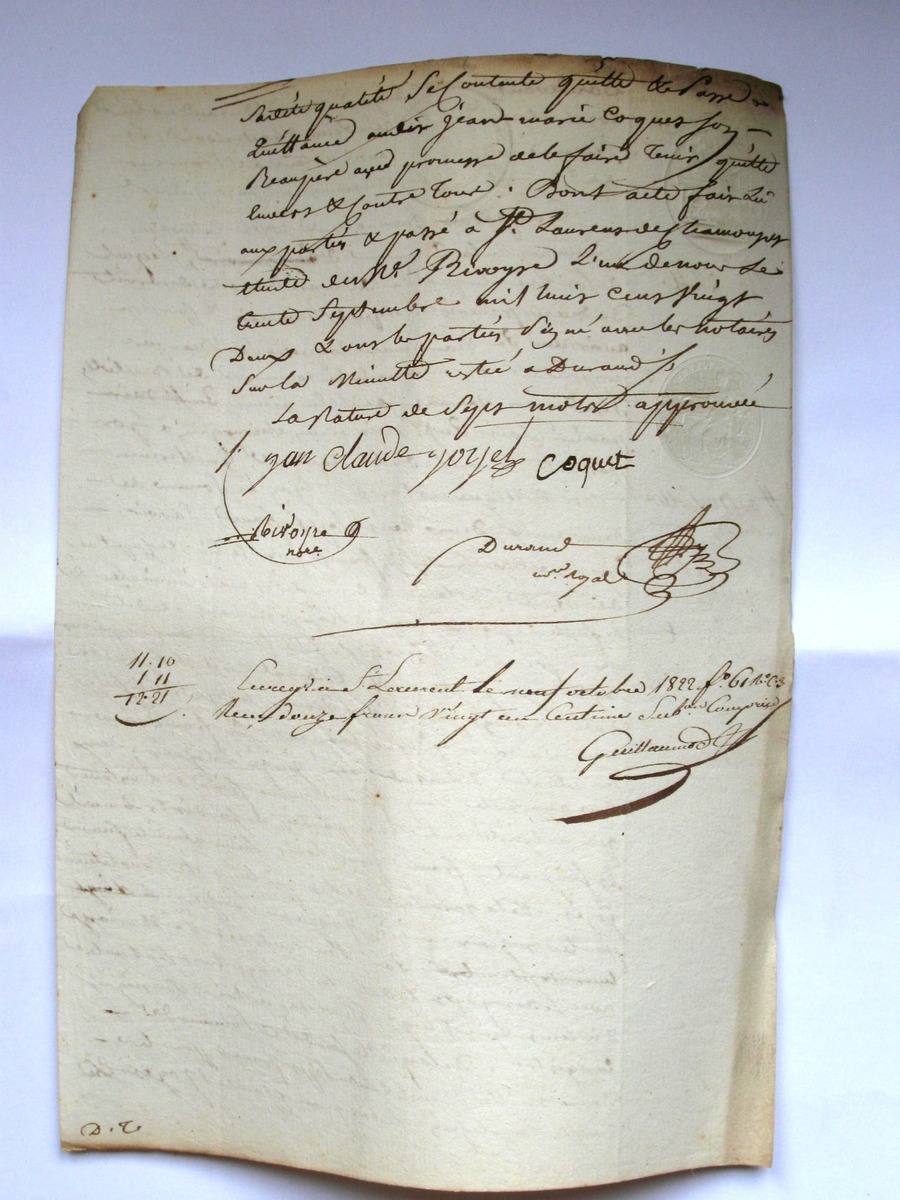 Sadite qualité Se Contente quitte & Passe
Quittance audit Jéan marie Coquet Son
Beaupère avec promesse de le faire Tenir quitte
Envers & Contre Tous. Dont acte fait Lû
aux partiés & passé à St. Laurens de Chamousset
Etude du Me. Rivoyre L'un de nous Le
trente Septembre mil huit Cens Vingt
Deux & ont les partiés Signé avec les notaires
Sur la Minutte restée a Durand
La Rature de Sept mots approuvée
jan Claude joyet Coquet
Rivoyre
nore.
Durand
nre. royal
11.10
1 11
12.21
Enregé. à St. Laurent le neuf octobre 1822 fo. 61 Ro. C. 3
Reçu douze francs Vingt un Centimes Subon. Comprise
Guillaumod
D. T.